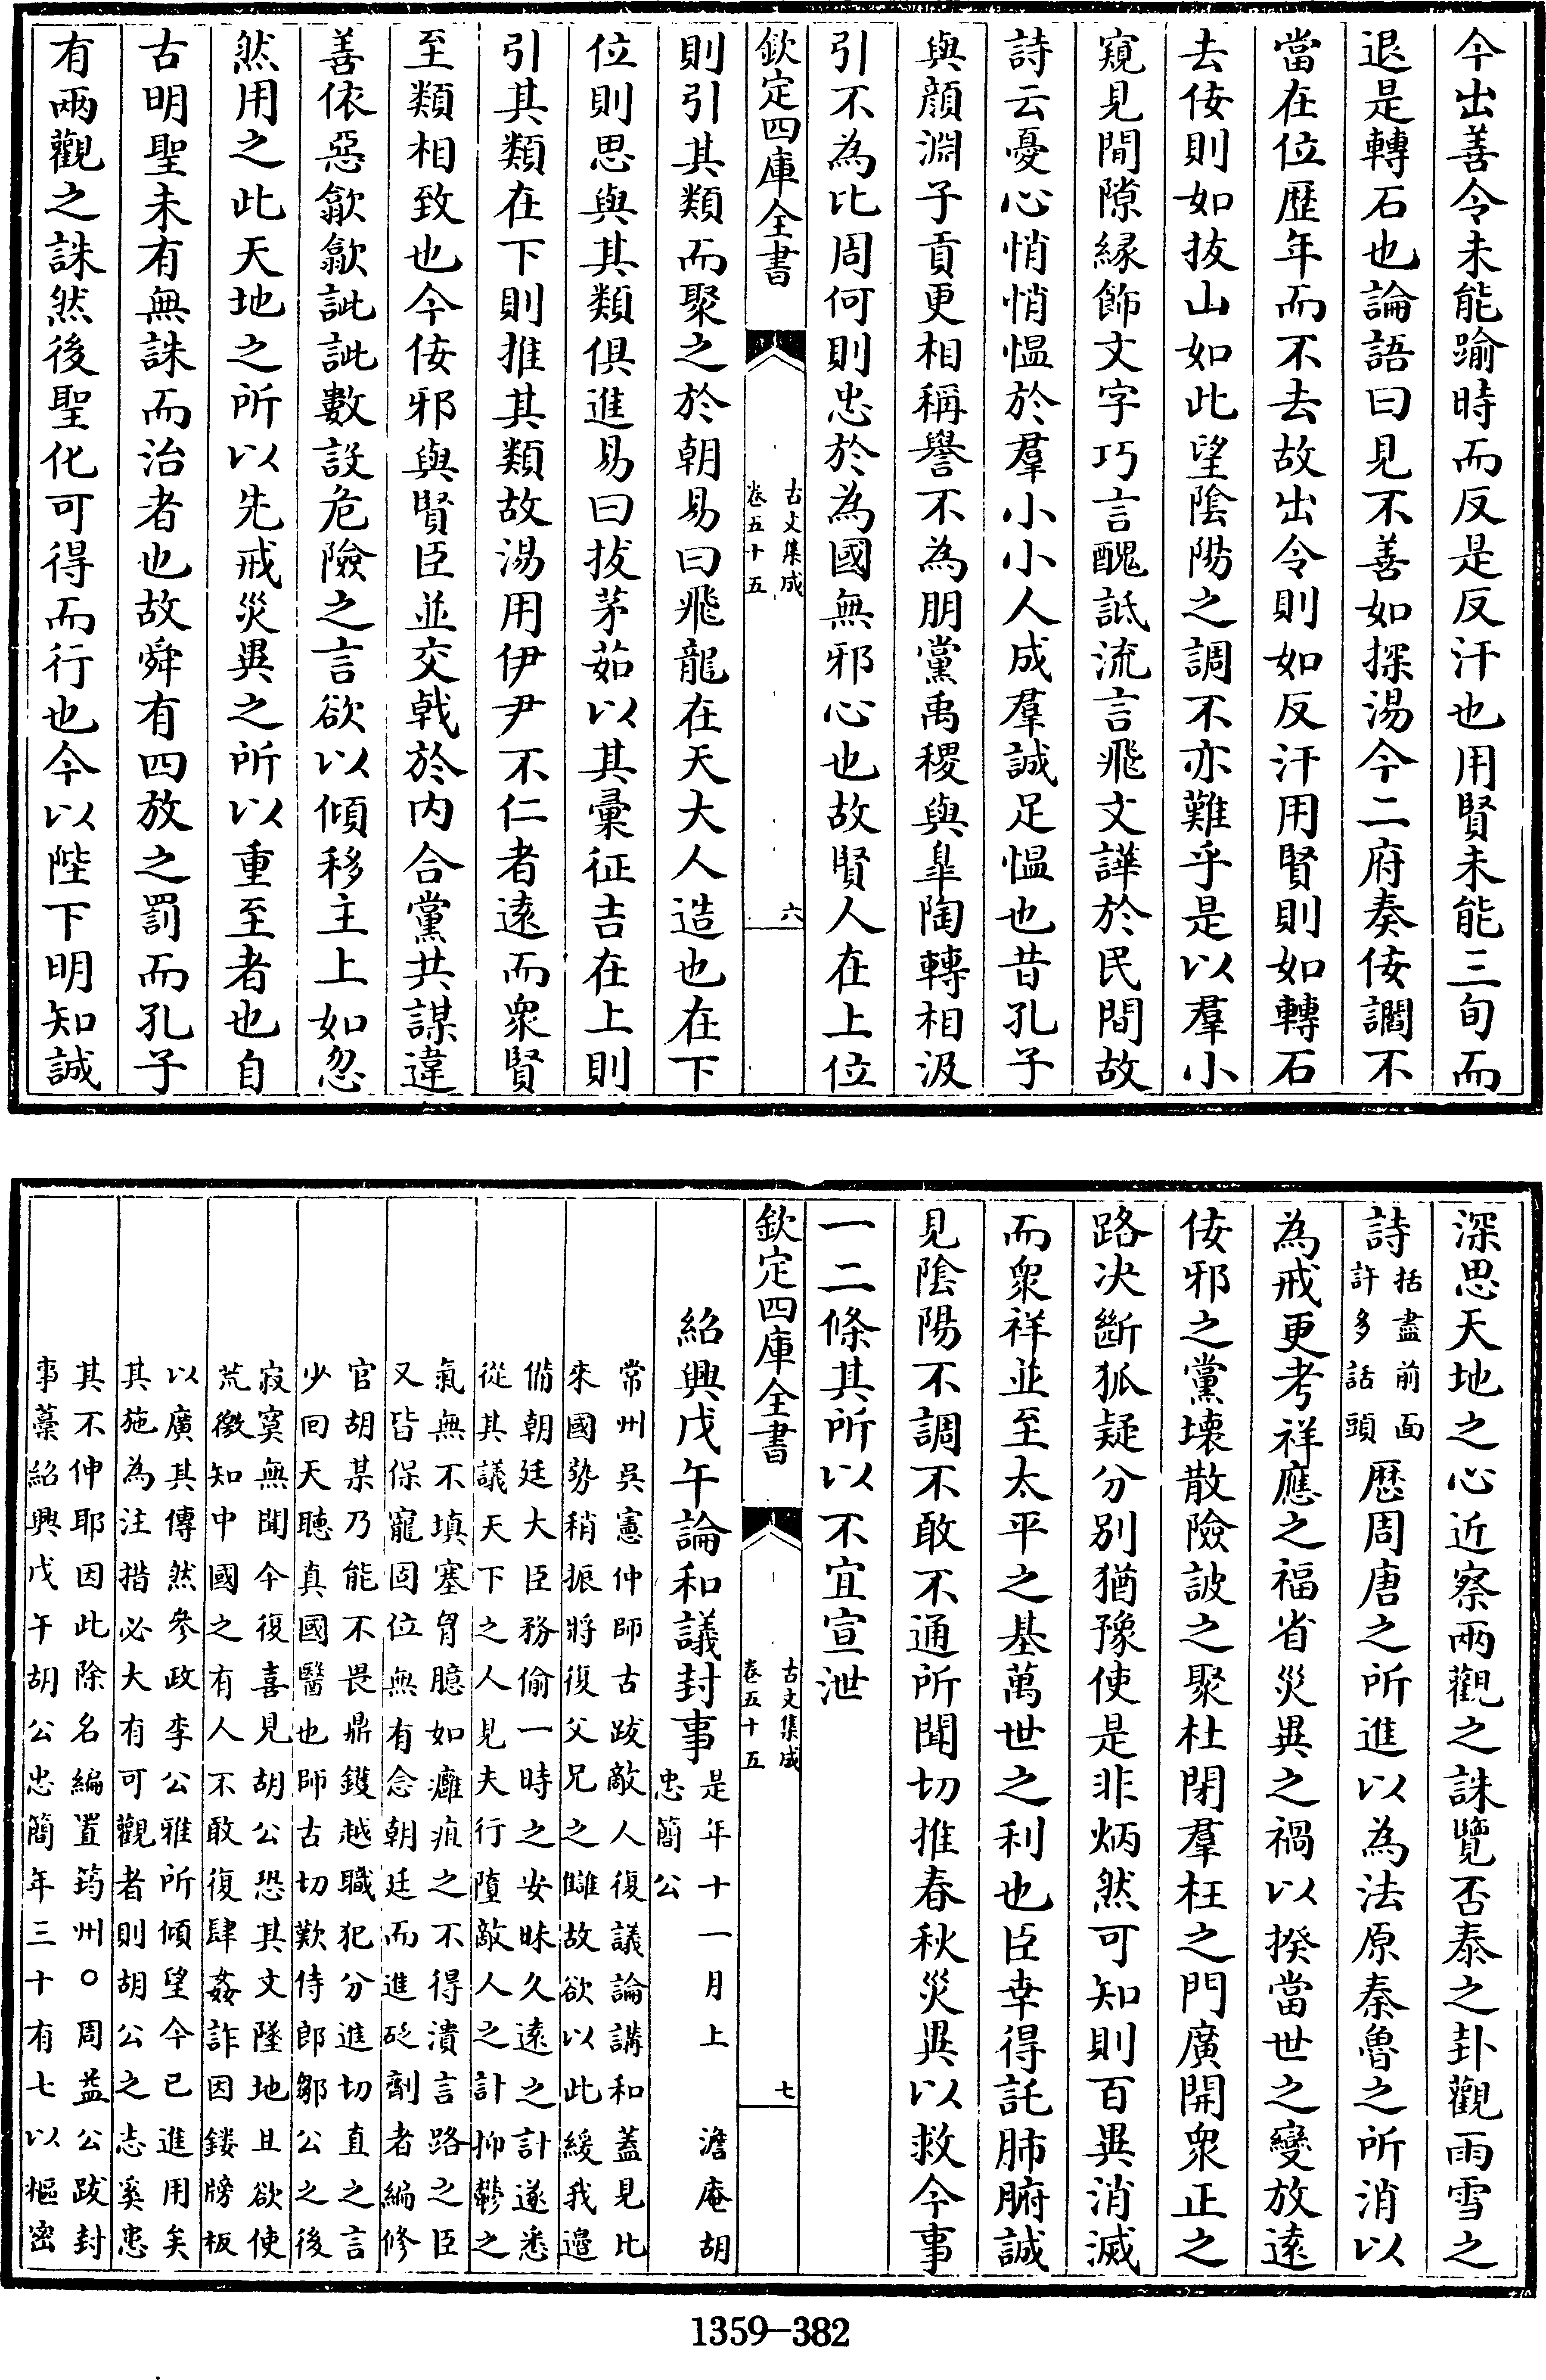 今出善令未能踰時而反是反汗也用賢未能三旬而
退是轉石也論語曰見不善如探湯今二府奏佞讇不
當在位歴年而不去故出令則如反汗用賢則如轉石
去佞則如拔山如此望隂陽之調不亦難乎是以羣小
窺見間隙縁飾文字巧言醜詆流言飛文譁於民間故
詩云憂心悄悄愠於羣小小人成羣誠足愠也昔孔子
與顔淵子貢更相稱譽不為朋黨禹稷與臯陶轉相汲
引不為比周何則忠於為國無邪心也故賢人在上位
欽定四庫全書
古文集成
卷五十五
六
則引其類而聚之於朝易曰飛龍在天大人造也在下
位則思與其類俱進易曰拔茅茹以其彙征吉在上則
引其類在下則推其類故湯用伊尹不仁者逺而衆賢
至類相致也今佞邪與賢臣並交戟於内合黨共謀違
善依惡歙歙訿訿數設危險之言欲以傾移主上如忽
然用之此天地之所以先戒災異之所以重至者也自
古明聖未有無誅而治者也故舜有四放之罰而孔子
有兩觀之誅然後聖化可得而行也今以陛下明知誠
深思天地之心近察兩觀之誅覽否泰之卦觀雨雪之
詩括盡前面許多話頭歴周唐之所進以為法原秦魯之所消以
為戒更考祥應之福省災異之禍以揆當世之變放逺
佞邪之黨壊散險詖之聚杜閉羣枉之門廣開衆正之
路决斷狐疑分别猶豫使是非炳然可知則百異消滅
而衆祥並至太平之基萬世之利也臣幸得託肺腑誠
見隂陽不調不敢不通所聞切推春秋災異以救今事
一二條其所以不宜宣泄
欽定四庫全書
古文集成
卷五十五
七
紹興戊午論和議封事是年十一月上　澹庵胡忠簡公
常州吳憲仲師古跋敵人復議論講和蓋見比
來國勢稍振將復父兄之讎故欲以此緩我邉
備朝廷大臣務偷一時之安昧久逺之計遂悉
從其議天下之人見夫行墮敵人之計抑鬱之
氣無不填塞胷臆如癰疽之不得潰言路之臣
又皆保寵固位無有念朝廷而進砭劑者編修
官胡某乃能不畏鼎鑊越職犯分進切直之言
少回天聽真國醫也師古切歎侍郎鄒公之後
寂寞無聞今復喜見胡公恐其文墜地且欲使
荒徼知中國之有人不敢復肆姦詐因鏤牓板
以廣其傳然參政李公雅所傾望今已進用矣
其施為注措必大有可觀者則胡公之志奚患
其不伸耶因此除名編置筠州○周益公跋封
事藁紹興戊午胡公忠簡年三十有七以樞密
1359-382